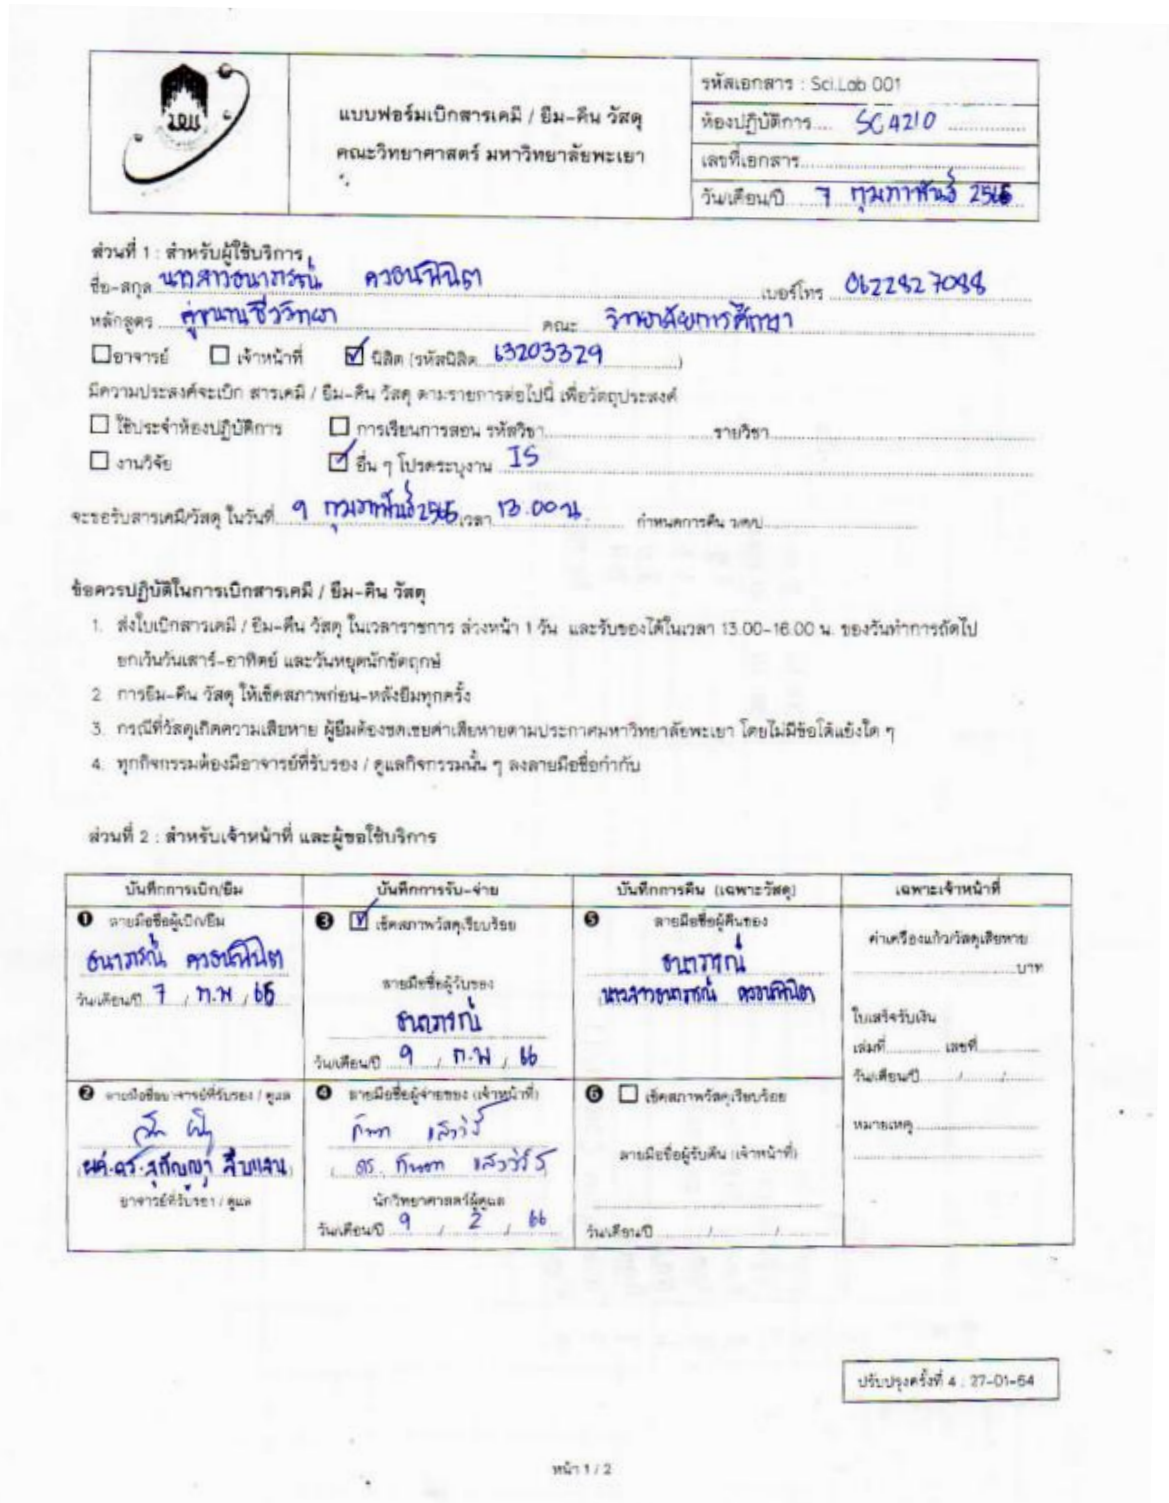 แบบฟอร์มเบิกสารเคมี / ยืม-คืน วัสดุ
คณะวิทยาศาสตร์ มหาวิทยาลัยพะเยา
รหัสเอกสาร : Sci.Lab 001
ห้องปฏิบัติการ.... SC4210
เลขที่เอกสาร
วัน/เดือน/ปี 7 กุมภาพันธ์ 2566
ส่วนที่ 1 : สำหรับผู้ใช้บริการ
ชื่อ-สกุล นางสาวธนาภรณ์ เบอร์โทร 0622827088
หลักสูตร คู่ขนานชีววิทยา คณะ วิทยาลัยการศึกษา
☐อาจารย์ ☐ เจ้าหน้าที่ ☑ นิสิต (รหัสนิสิต 63203329)
มีความประสงค์จะเบิก สารเคมี / ยืม-คืน วัสดุ ตามรายการต่อไปนี้ เพื่อวัตถุประสงค์
☐ ใช้ประจำห้องปฏิบัติการ ☐ การเรียนการสอน รหัสวิชา รายวิชา
☐ งานวิจัย ☑ อื่น ๆ โปรดระบุงาน IS
จะขอรับสารเคมี/วัสดุ ในวันที่ 9 กุมภาพันธ์ 2566 เวลา 13.00 น. กำหนดการคืน ว/ด/ป
ข้อควรปฏิบัติในการเบิกสารเคมี / ยืม-คืน วัสดุ
1. ส่งใบเบิกสารเคมี / ยืม-คืน วัสดุ ในเวลาราชการ ล่วงหน้า 1 วัน และรับของได้ในเวลา 13.00-16.00 น. ของวันทำการถัดไป
ยกเว้นวันเสาร์-อาทิตย์ และวันหยุดนักขัตฤกษ์
2. การยืม-คืน วัสดุ ให้เช็คสภาพก่อน-หลังยืมทุกครั้ง
3. กรณีที่วัสดุเกิดความเสียหาย ผู้ยืมต้องชดเชยค่าเสียหายตามประกาศมหาวิทยาลัยพะเยา โดยไม่มีข้อโต้แย้งใด ๆ
4. ทุกกิจกรรมต้องมีอาจารย์ที่รับรอง / ดูแลกิจกรรมนั้น ๆ ลงลายมือชื่อกำกับ
ส่วนที่ 2 : สำหรับเจ้าหน้าที่ และผู้ขอใช้บริการ
บันทึกการเบิก/ยืม บันทึกการรับ-จ่าย บันทึกการคืน (เฉพาะวัสดุ) เฉพาะเจ้าหน้าที่
❶ ลายมือชื่อผู้เบิก/ยืม
ธนาภรณ์
วัน/เดือน/ปี 7 / ก.พ / 66
❸ ☑ เช็คสภาพวัสดุเรียบร้อย
ลายมือชื่อผู้รับของ
ธนาภรณ์
วัน/เดือน/ปี 9 / ก.พ / 66
❺ ลายมือชื่อผู้คืนของ
ธนาภรณ์
นางสาวธนาภรณ์
ค่าเครื่องแก้ว/วัสดุเสียหาย
บาท
ใบเสร็จรับเงิน
เล่มที่ เลขที่
วัน/เดือน/ปี / /
หมายเหตุ
❷ ลายมือชื่ออาจารย์ที่รับรอง / ดูแล
(ผศ.ดร.สุกัญญา สืบแสน)
อาจารย์ที่รับรอง / ดูแล
❹ ลายมือชื่อผู้จ่ายของ (เจ้าหน้าที่)
ดร.
นักวิทยาศาสตร์ผู้ดูแล
วัน/เดือน/ปี 9 / 2 / 66
❻ ☐ เช็คสภาพวัสดุเรียบร้อย
ลายมือชื่อผู้รับคืน (เจ้าหน้าที่)
วัน/เดือน/ปี / /
ปรับปรุงครั้งที่ 4 : 27-01-64
หน้า 1 / 2